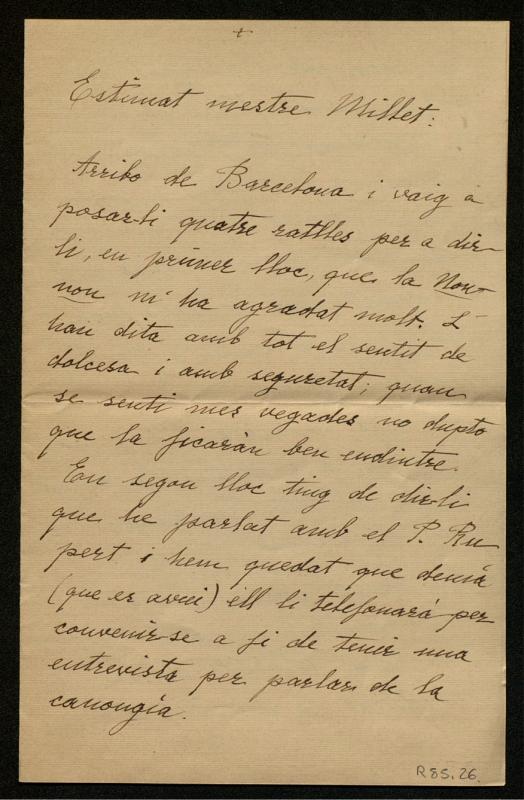 +
Estimat mestre Millet:
Arribo de Barcelona i vaig a
posar-li quatre ratlles per a dir-
li, en primer lloc, que la Non-
non m'ha agradat molt. L'-
han dita amb tot el sentit de
dolcesa i amb seguretat; quan
se senti mes vegades no dupto
que la ficaràn ben endintre.
En segon lloc ting de dir-li
que he parlat amb el P. Ru
pert i hem quedat que demà
(que es avui) éll li telefonará per
convenir-se a fi de tenir una
entrevista per parlar de la
canongía.
R 85.26.